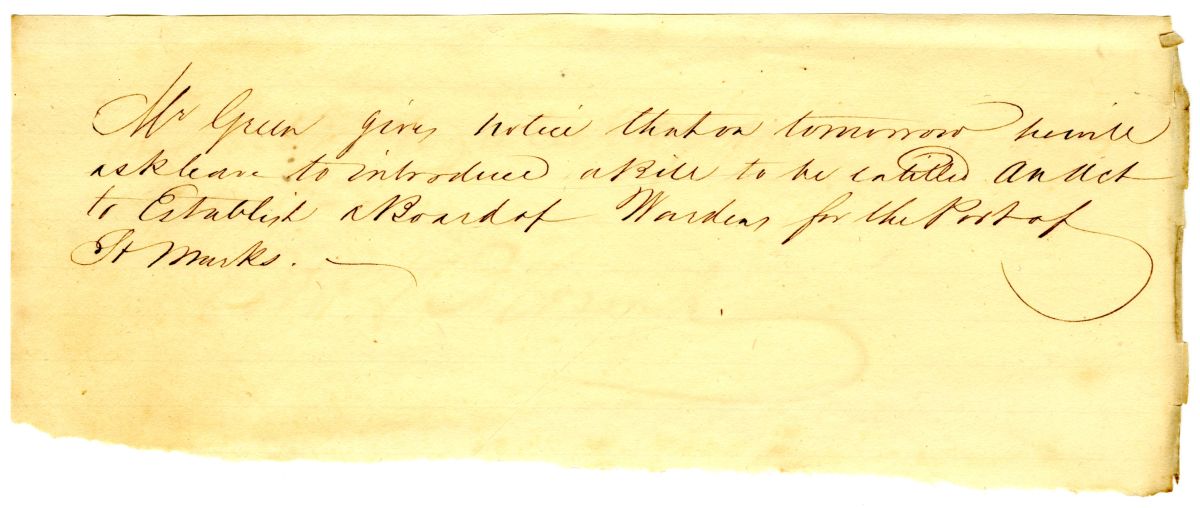 Mr Green gives notice that on tomorrow he will
ask leave to introduce a Bill to be entitled An Act
to Establish a Board of Wardens for the Port of
St Marks.